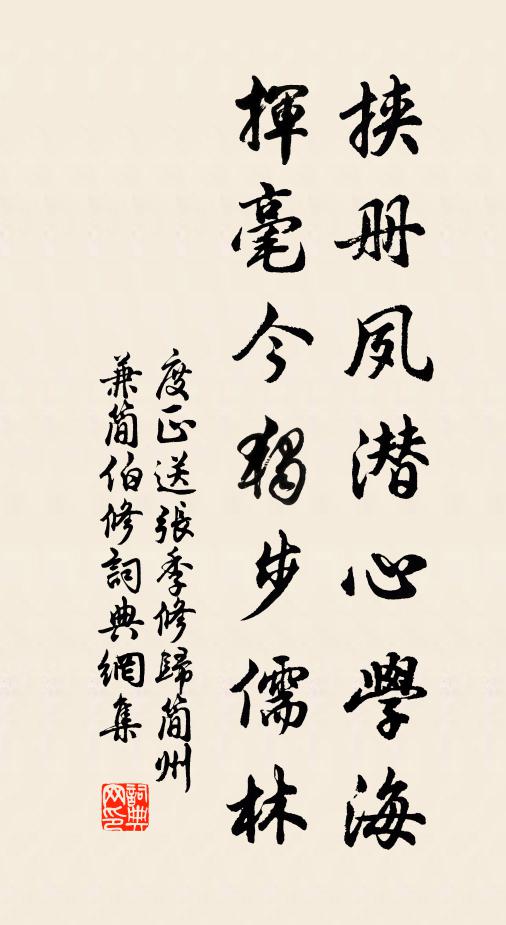 挟册夙潜心學海
揮毫今獨步儒林
度正送張季修歸簡州
兼簡伯修詞典網集
詞典
网印